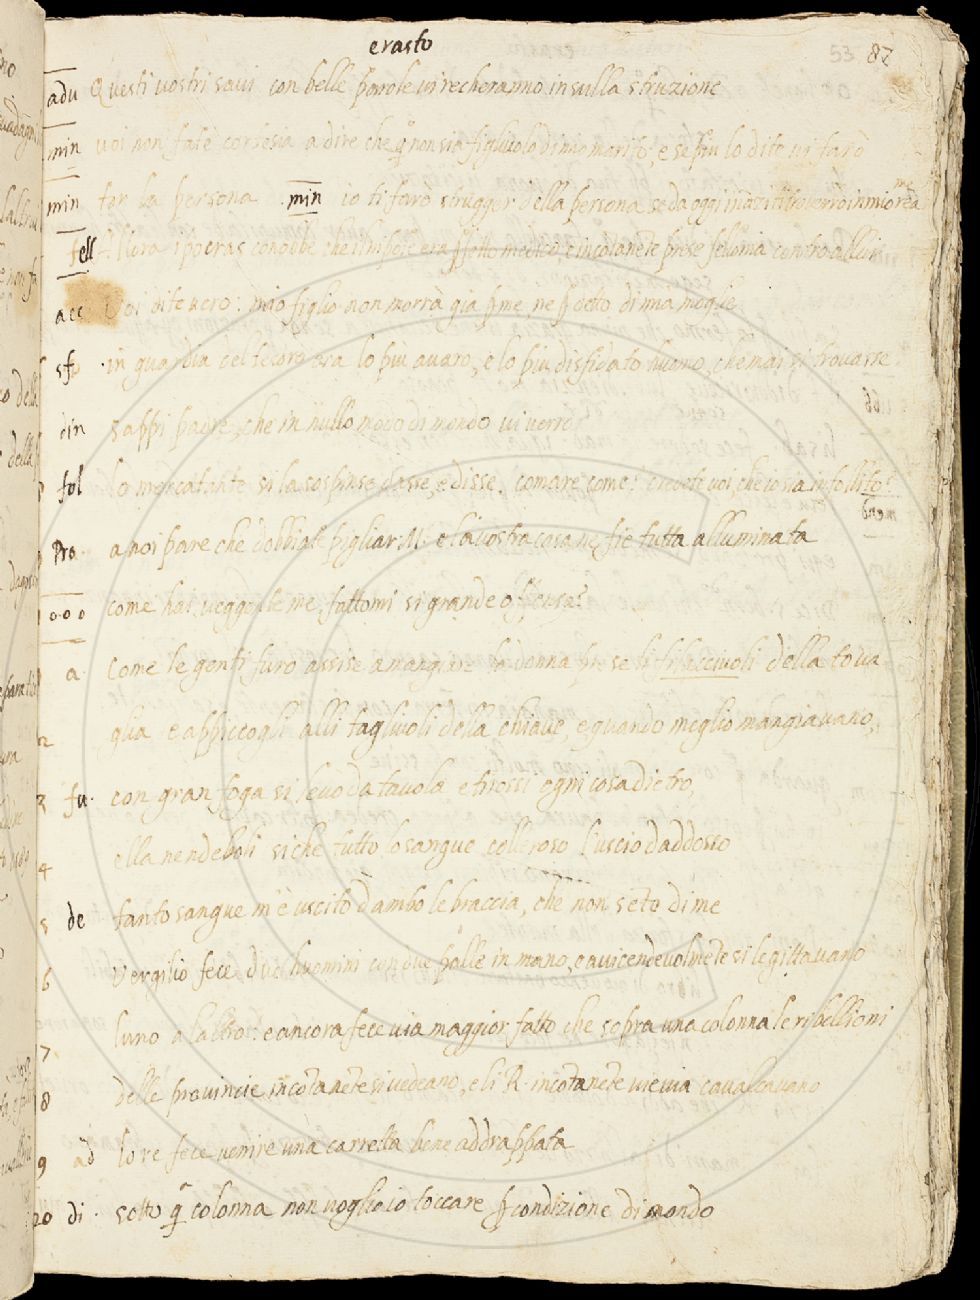 erasto
53 87
adu Questi vostri savi con belle parole vi recheranno in sulla struzione
min voi non fate cortesia a dire che q̃o non sia figliuolo di mio marito, e se piu lo dite vi farò
min tor la persona min io ti farò strugger della persona se da oggi
fell Allora ipocras conobbe che il nipote era medico e incotanẽte prese fellonia contro a llui
acc Voi dite vero: mio figlio non morrà già ꝑ me, ne ꝑ detto di mia moglie
sfi in guardia del tesoro era lo più avaro, e lo più disfidato huomo, che mai si trovasse
din sappi padre, che in nullo modo di mondo vi verrò
fol lo mercatante si la sospinse dasse, e disse, comare come? credete voi, che io sia infollito?
Pro a noi pare che dobbiate pigliar M. e la vostra casa ne fie tutta alluminata
1000 come hai, veggole me, fattomi si grande offensa?
a. Come le genti furo assise a mangiare la donna prese si fibicciuoli della tova
2 glia e appiccogli alli tagliuoli della chiave, e quando meglio mangiavano,
3 fu. con gran foga si levò da tavola e tirossi ogni cosa dietro,
4 ella nendebolì siche tutto lo sangue colleroso l'uscio d'addosso
5 de tanto sangue m'è uscito d'ambo le braccia, che non seto di me
6 Vergilio fece duo huomini con due palle in mano, e avicendevolmẽte si le gittavano
7 luno a laltro: e ancora fece via maggior fatto che sopra una colonna le ribellioni
8 delle provincie incotanẽte si vedeano, e li R. incotanẽte vie via cavalcavano
9 ad lo re fece venire una carretta bene addrappata
10 di. sotto q̃ colonna non voglio io toccare ꝑ condizione di mondo